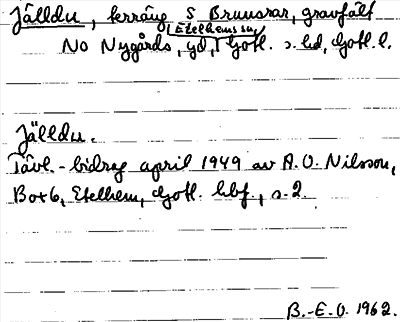 Jälldu, terräng S Brunsrar, gravfält
(Etelhems sn)
NO Nygårds, gd, Gotl. s. hd, Gotl. l.
Jälldu.
Tävl.-bidrag april 1949 av A.O. Nilsson,
Box 6, Etelhem, Gotl. hbf., s. 2.
B.-E.O. 1962.